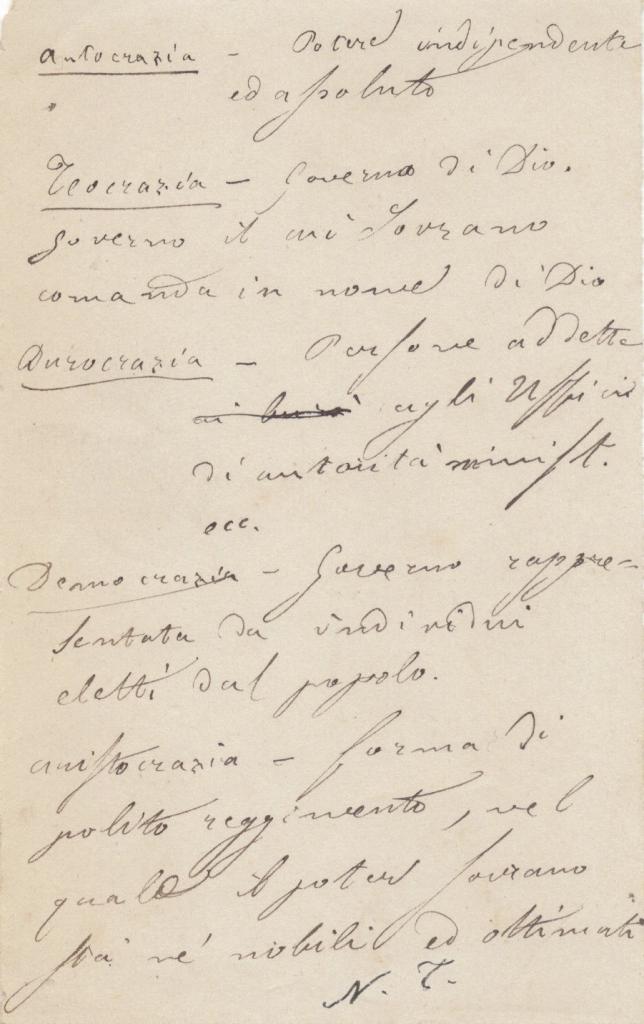 Autocrazia – Potere indipendente
" ed assoluto
Teocrazia – Governo di Dio.
Governo il cui Sovrano
comanda in nome di Dio
Burocrazia – Persone addette
agli Uffici
di autorità minist.
ecc.
Democrazia – Governo rappre=
sentato da individui
eletti dal popolo.
Aristocrazia – forma di
polito reggimento, nel
quale il poter sovrano
sta nè nobili ed ottimati
N. T.